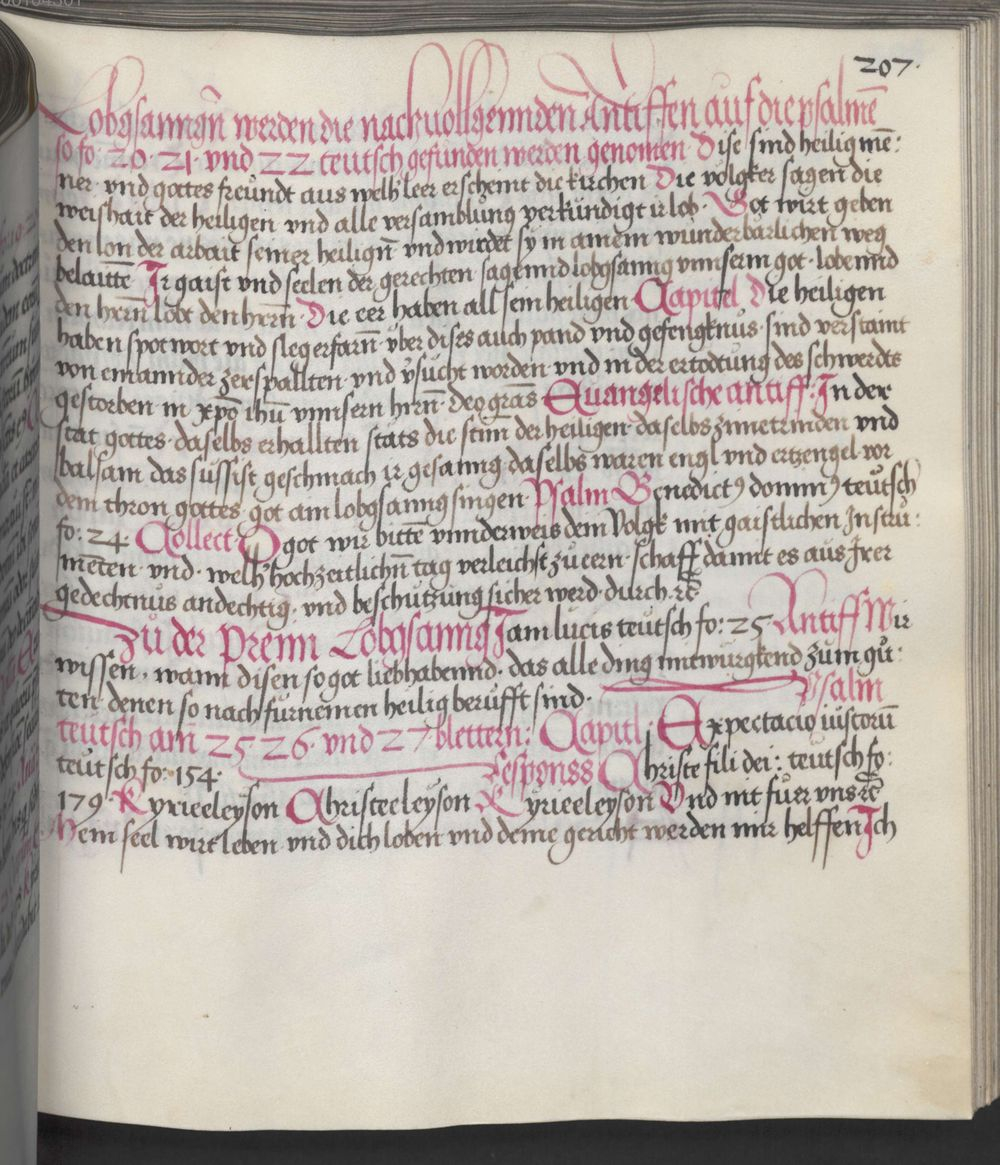 207.
Lobgsanngñ werden die nachuollgennden Antiffen auf die psalmē
so fo: 20. 21. vnd 22 teutsch gefunden werden genomen. Dise sind heilig mē:
ner. vnd gottes freundt aus welh leer erscheint die kirchen Die völgker sagen die
weishait der heiligen. vnd alle versamblung verkündigt ir lob. Got wirt geben
den lon der arbait seiner heilign̄ vnd wirdet sy in ainem wunderbarlichen weg
belaitte Ir gaist vnd seelen der gerechten sagennd lobgsanng vnnserm got. lobennd
den herrn̄ lobt den herrn̄. Die eer haben all sein heiligen. Capitel Die heiligen
haben spotwort vnd sleg erfarn̄. vber dises auch pand vnd gefengknus. sind verstaint
von einannder zerspallten. vnd v̄sucht worden vnd in der ertodtung des schwerdts
gestorben in xp̄o ih̄u vnnsern hrn̄. deo grās Euangelische antiff. In der
stat gottes. daselbs erhallten stäts die stim̄ der heiligen. daselbs zimetrinden vnd
balsam das süssist geschmach ir gesanng. daselbs waren engl vnd ertzengel vor
dem thron gottes got ain lobgsanng singen. Psalm Benedictꝰ dominꝰ teutsch
fo: 24. Collect O got wir bitte vnnderweis dem Volgk mit gaistlichen Instru:
menten. vnd. welh hochzeitlichn̄ tag verleichst zu eern. schaff damit es aus Irer
gedechtnus andechtig. vnd beschutzung sicher werd. durch. ꝛc̄
Zu der Preim Lobgsanng Iam lucis teutsch fo: 25 Antiff Wir
wissen. wann disen so got liebhabennd. das alle ding mitwürgkend zum gu:
ten. denen so nach furnemen heilig berufft sind. Psalm
teutsch am̄ 25 26. vnd 27 blettern: Capitl. Expectacio iustorū
teutsch fo: 154. Responss Christe fili dei: teutsch fo:
179. Kyrieeleyson Christeeleyson Kyrieeleyson Vnd nit fuer vns ꝛc̄
Mein seel wirt leben. vnd dich loben vnd deine gericht werden mir helffen Ich